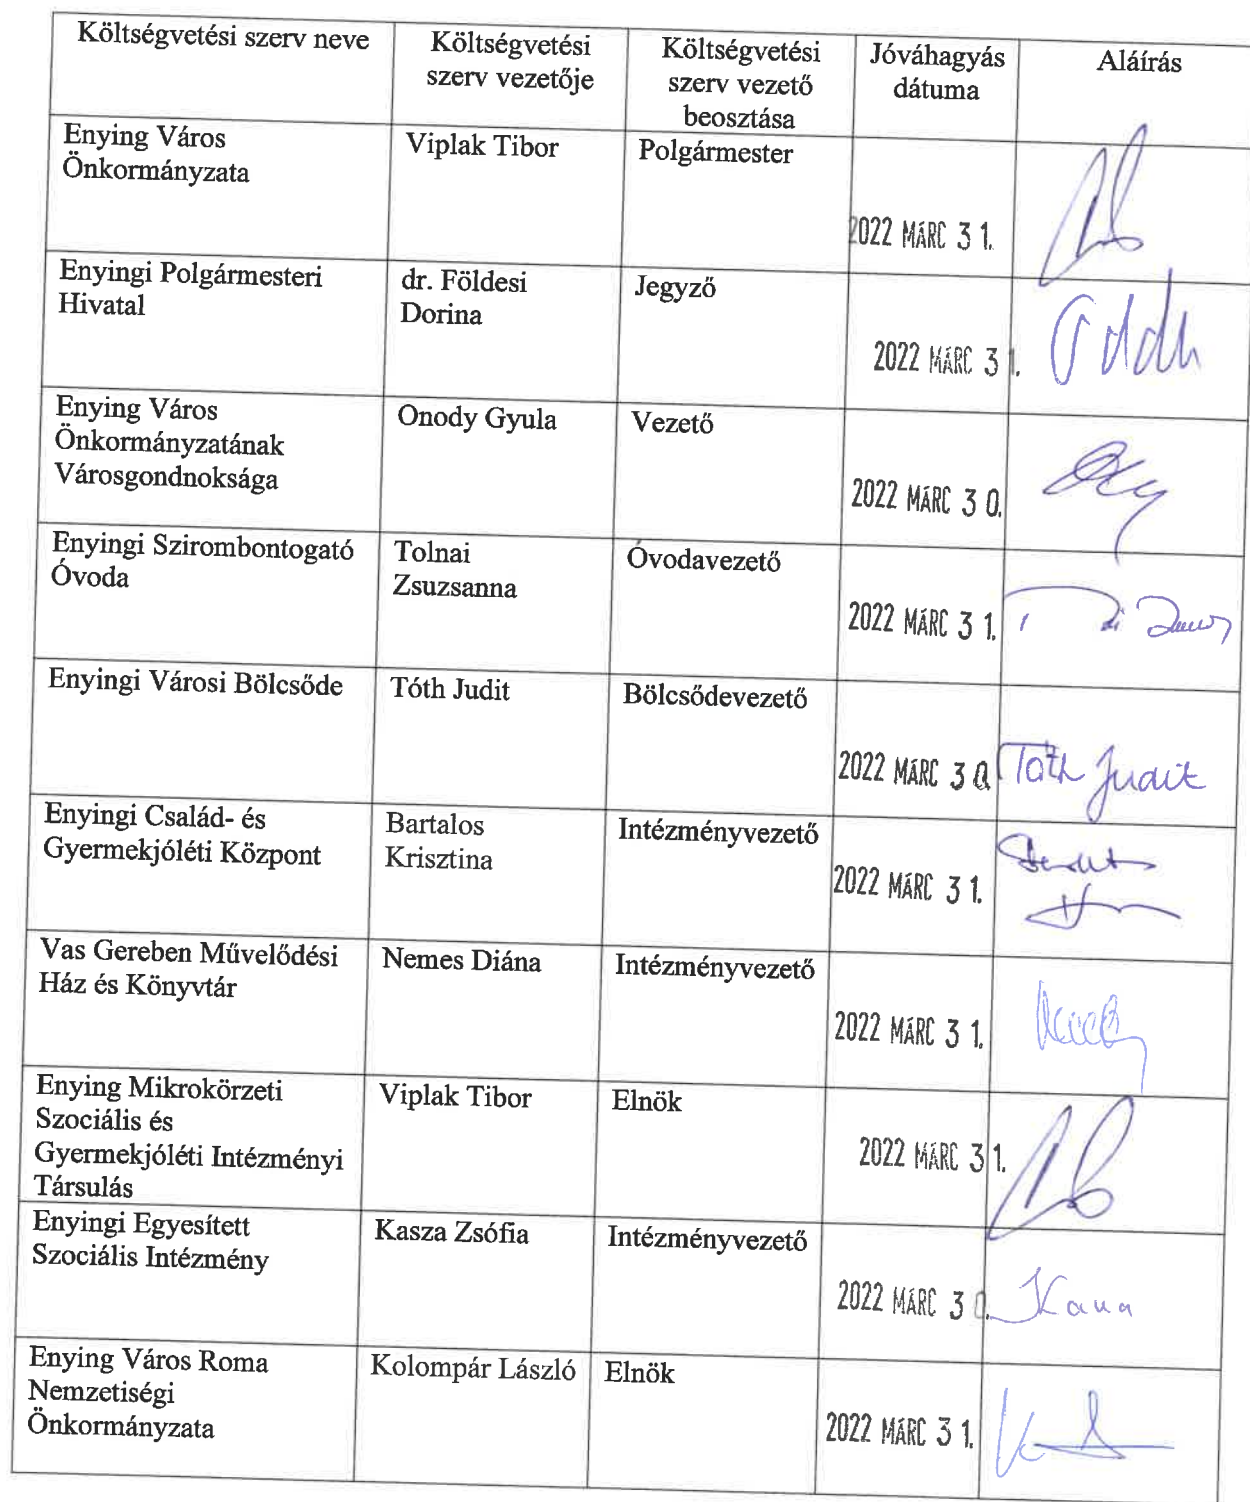 Költségvetési szerv neve
Költségvetési
szerv vezetője
Költségvetési
szerv vezető
beosztása
Jóváhagyás
dátuma
Aláírás
Enying Város
Önkormányzata
Viplak Tibor
Polgármester
2022 MÁRC 3 1.
Enyingi Polgármesteri
Hivatal
dr. Földesi
Dorina
Jegyző
2022 MÁRC 3 1.
Enying Város
Önkormányzatának
Városgondnoksága
Onody Gyula
Vezető
2022 MÁRC 3 0.
Enyingi Szirombontogató
Óvoda
Tolnai
Zsuzsanna
Óvodavezető
2022 MÁRC 3 1.
Enyingi Városi Bölcsőde
Tóth Judit
Bölcsődevezető
2022 MÁRC 3 0.
Tóth Judit
Enyingi Család- és
Gyermekjóléti Központ
Bartalos
Krisztina
Intézményvezető
2022 MÁRC 3 1.
Vas Gereben Művelődési
Ház és Könyvtár
Nemes Diána
Intézményvezető
2022 MÁRC 3 1.
Enying Mikrokörzeti
Szociális és
Gyermekjóléti Intézményi
Társulás
Viplak Tibor
Elnök
2022 MÁRC 3 1.
Enyingi Egyesített
Szociális Intézmény
Kasza Zsófia
Intézményvezető
2022 MÁRC 3 0.
Enying Város Roma
Nemzetiségi
Önkormányzata
Kolompár László
Elnök
2022 MÁRC 3 1.